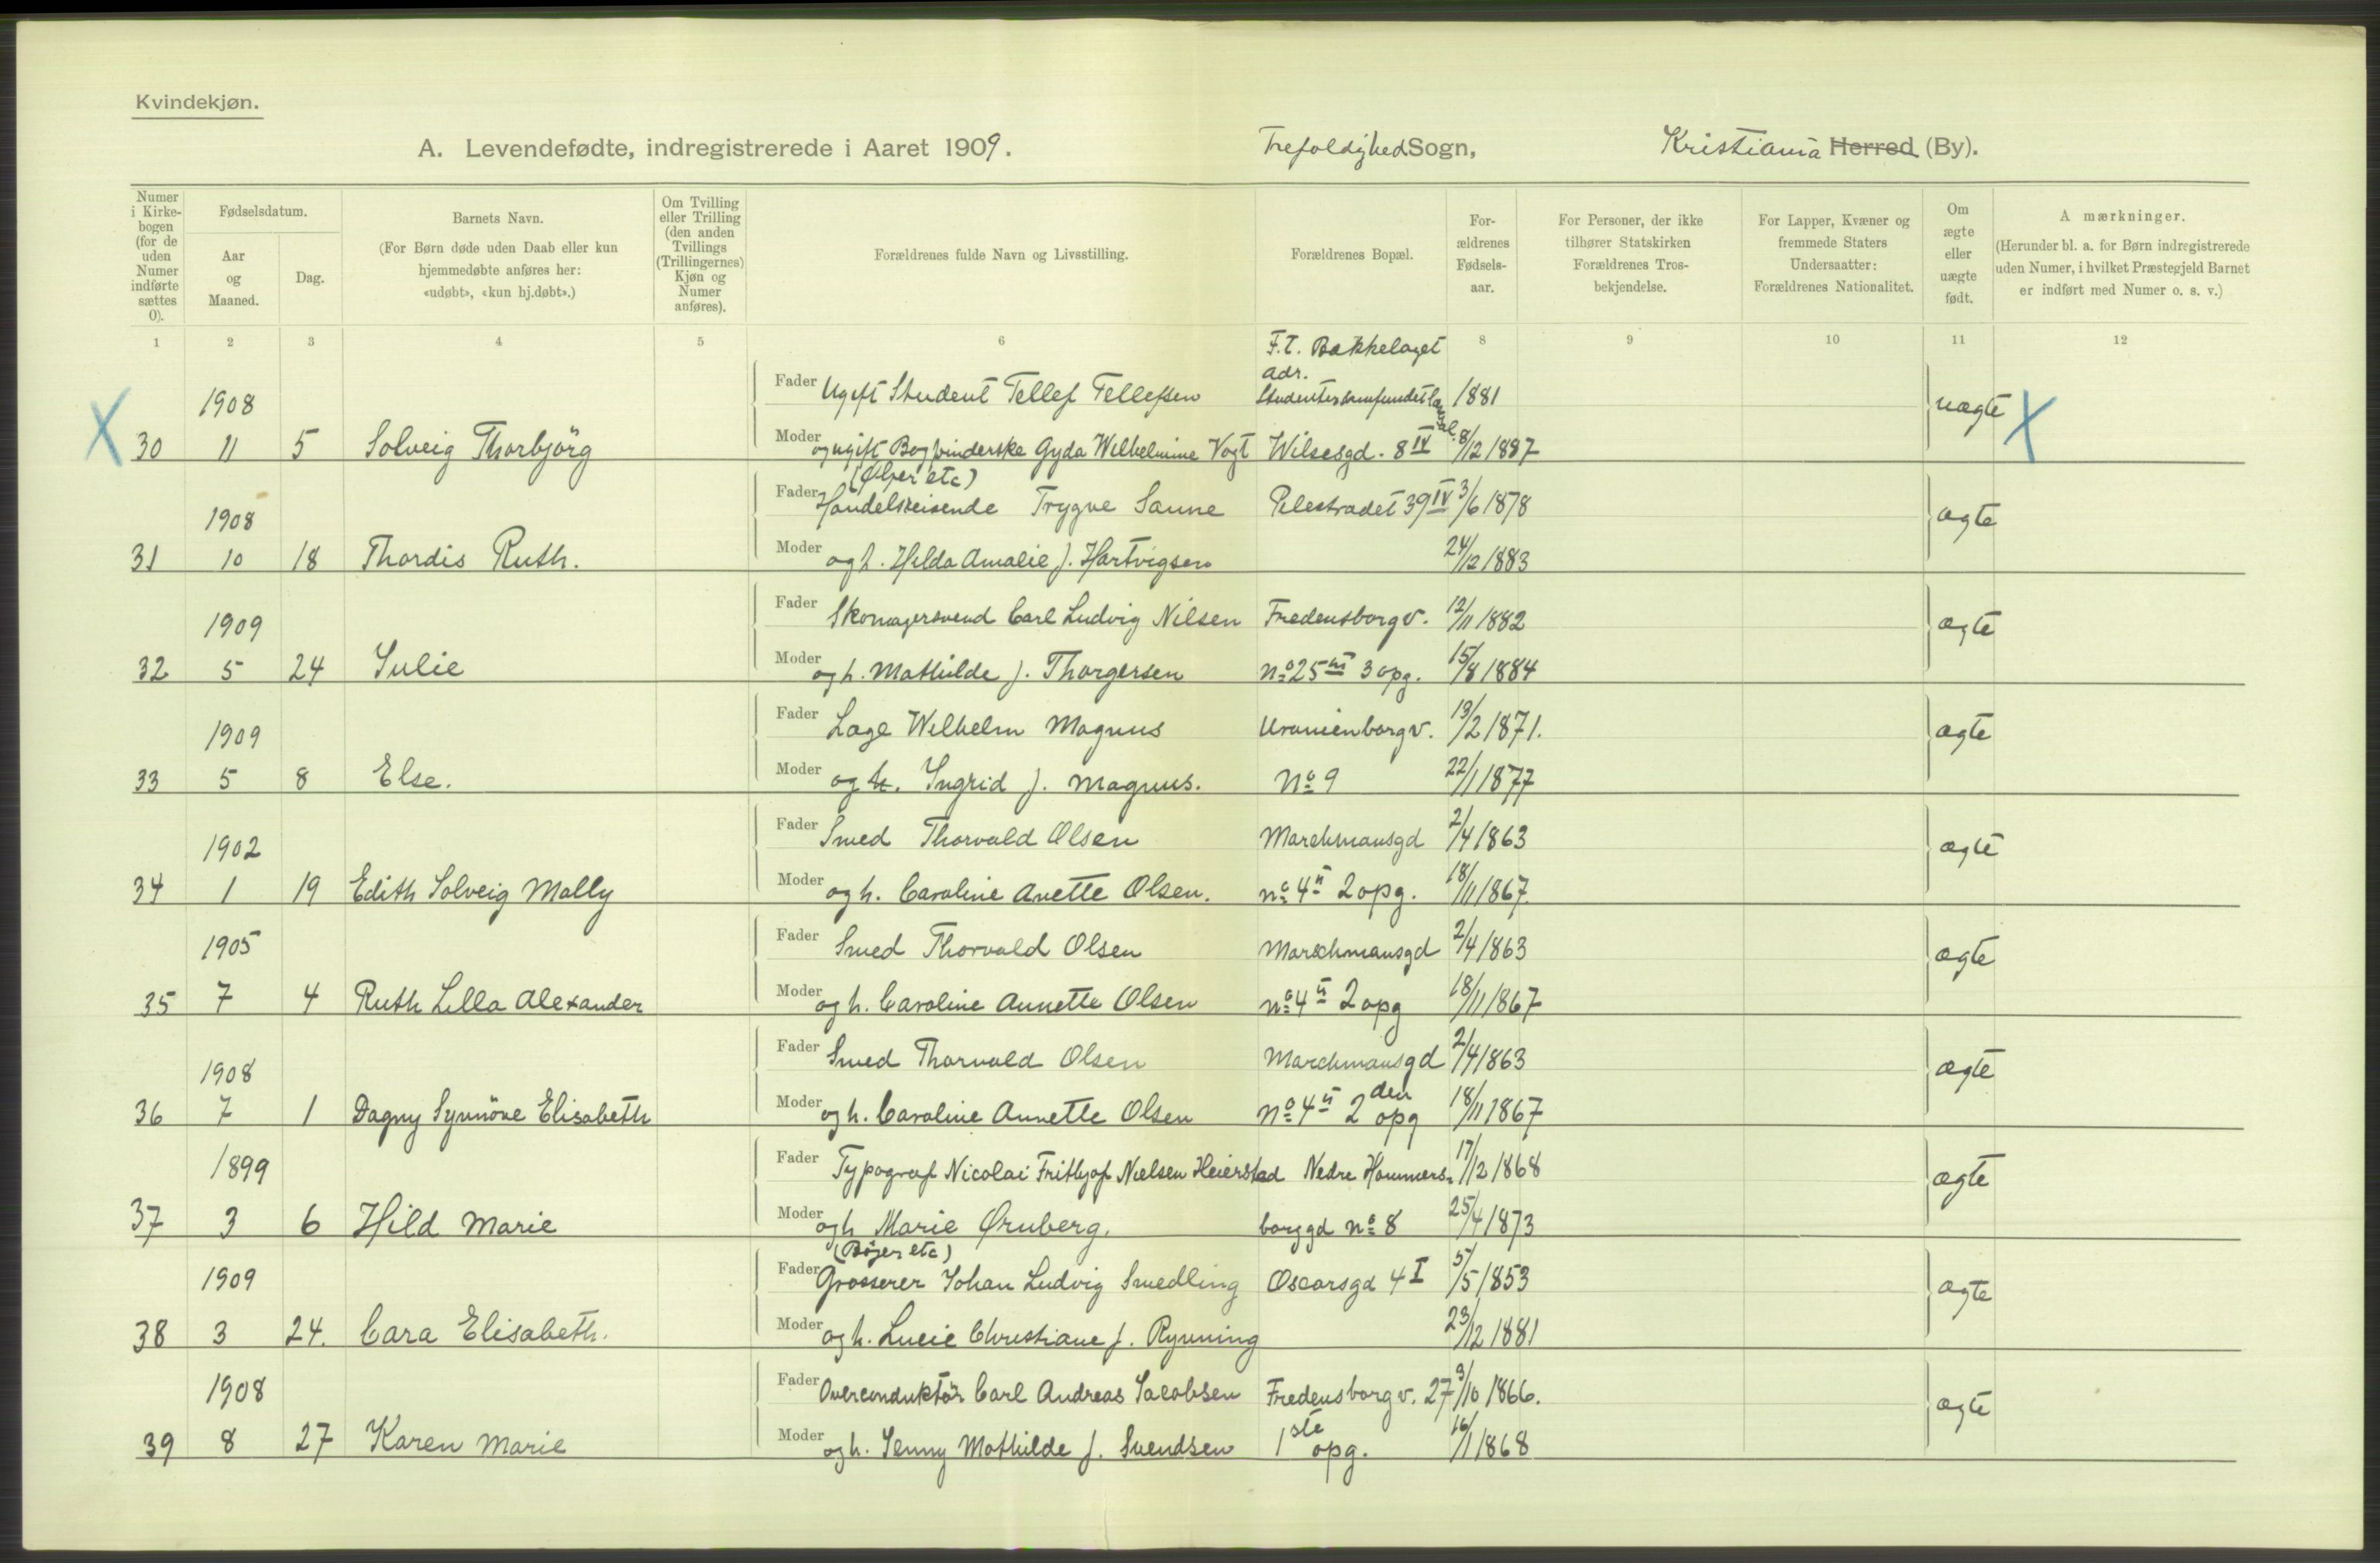 Kvindekjøn.
A. Levendefødte, indregistrerede i Aaret 1909. Trefoldighed Sogn, Kristiania Herred (By).
Numer i Kirkebogen (for de uden Numer indførte sættes 0).
Fødselsdatum.
Aar og Maaned.
Dag.
Barnets Navn.
(For Børn døde uden Daab eller kun hjemmedøbte anføres her: «udøbt», «kun hj.døbt».)
Om Tvilling eller Trilling (den anden Tvillings (Trillingernes) Kjøn og Numer anføres).
Forældrenes fulde Navn og Livsstilling.
Forældrenes Bopæl.
For-ældrenes Fødsels-aar.
For Personer, der ikke tilhører Statskirken Forældrenes Tros-bekjendelse.
For Lapper, Kvæner og fremmede Staters Undersaatter: Forældrenes Nationalitet.
Om ægte eller uægte født.
A mærkninger.
(Herunder bl. a. for Børn indregistrerede uden Numer, i hvilket Præstegjeld Barnet er indført med Numer o. s. v.)
1 2 3 4 5 6 8 9 10 11 12
F.t. Bakkelaget
adr.
1908 Fader Ugift Student Tellef Tellefsen Studentersamfundet 1881
X 30 11 5 Solveig Thorbjörg Moder og ugift Gyda Wilhelmine Vogt Wilsesgd. 8 IV 8/12 1887 uægte X
1908 Fader Handelsreisende Trygve Sanne Pilestrædet 39 IV 3/6 1878
31 10 18 Thordis Ruth. Moder og h. Hilda Amalie f. Hartvigsen 24/12 1883 ægte
1909 Fader Skomagersvend Carl Ludvig Nilsen Fredensborgv. 12/11 1882
32 5 24 Julie Moder og h. Mathilde f. Thorgersen No 25 III 3 opg. 15/8 1884 ægte
1909 Fader Lage Wilhelm Magnus Uranienborgv. 13/2 1871.
33 5 8 Else. Moder og h. Ingrid f. Magnus. No 9 22/1 1877 ægte
1902 Fader Smed Thorvald Olsen Marckmansgd 2/4 1863
34 1 19 Edith Solveig Molly Moder og h. Caroline Anette Olsen. no 4 II 2 opg. 18/11 1867. ægte
1905 Fader Smed Thorvald Olsen Marckmansgd 2/4 1863
35 7 4 Ruth Lilla Alexander Moder og h. Caroline Annette Olsen no 4 II 2 opg 18/11 1867 ægte
1908 Fader Smed Thorvald Olsen Marckmansgd 2/4 1863
36 7 1 Dagny Synnöve Elisabeth Moder og h. Caroline Annette Olsen No 4 II 2 den opg 18/11 1867 ægte
1899 Fader Typograf Nicolai Frithjof Nielsen Heierstad Nedre Hammers- 17/12 1868
37 3 6 Hild Marie Moder og h Marie Ørnberg. borggd no 8 25/4 1873 ægte
(Böger etc)
1909 Fader Grosserer Johan Ludvig Smedling Oscarsgd 4 I 5/5 1853
38 3 24. Cara Elisabeth. Moder og h. Lucie Christiane f. Rynning 23/12 1881 ægte
1908 Fader Overconduktör Carl Andreas Jacobsen Fredensborgv. 27 3/10 1866.
39 8 27 Karen Marie Moder og h. Jenny Mathilde f. Svendsen 1ste opg. 16/1 1868 ægte